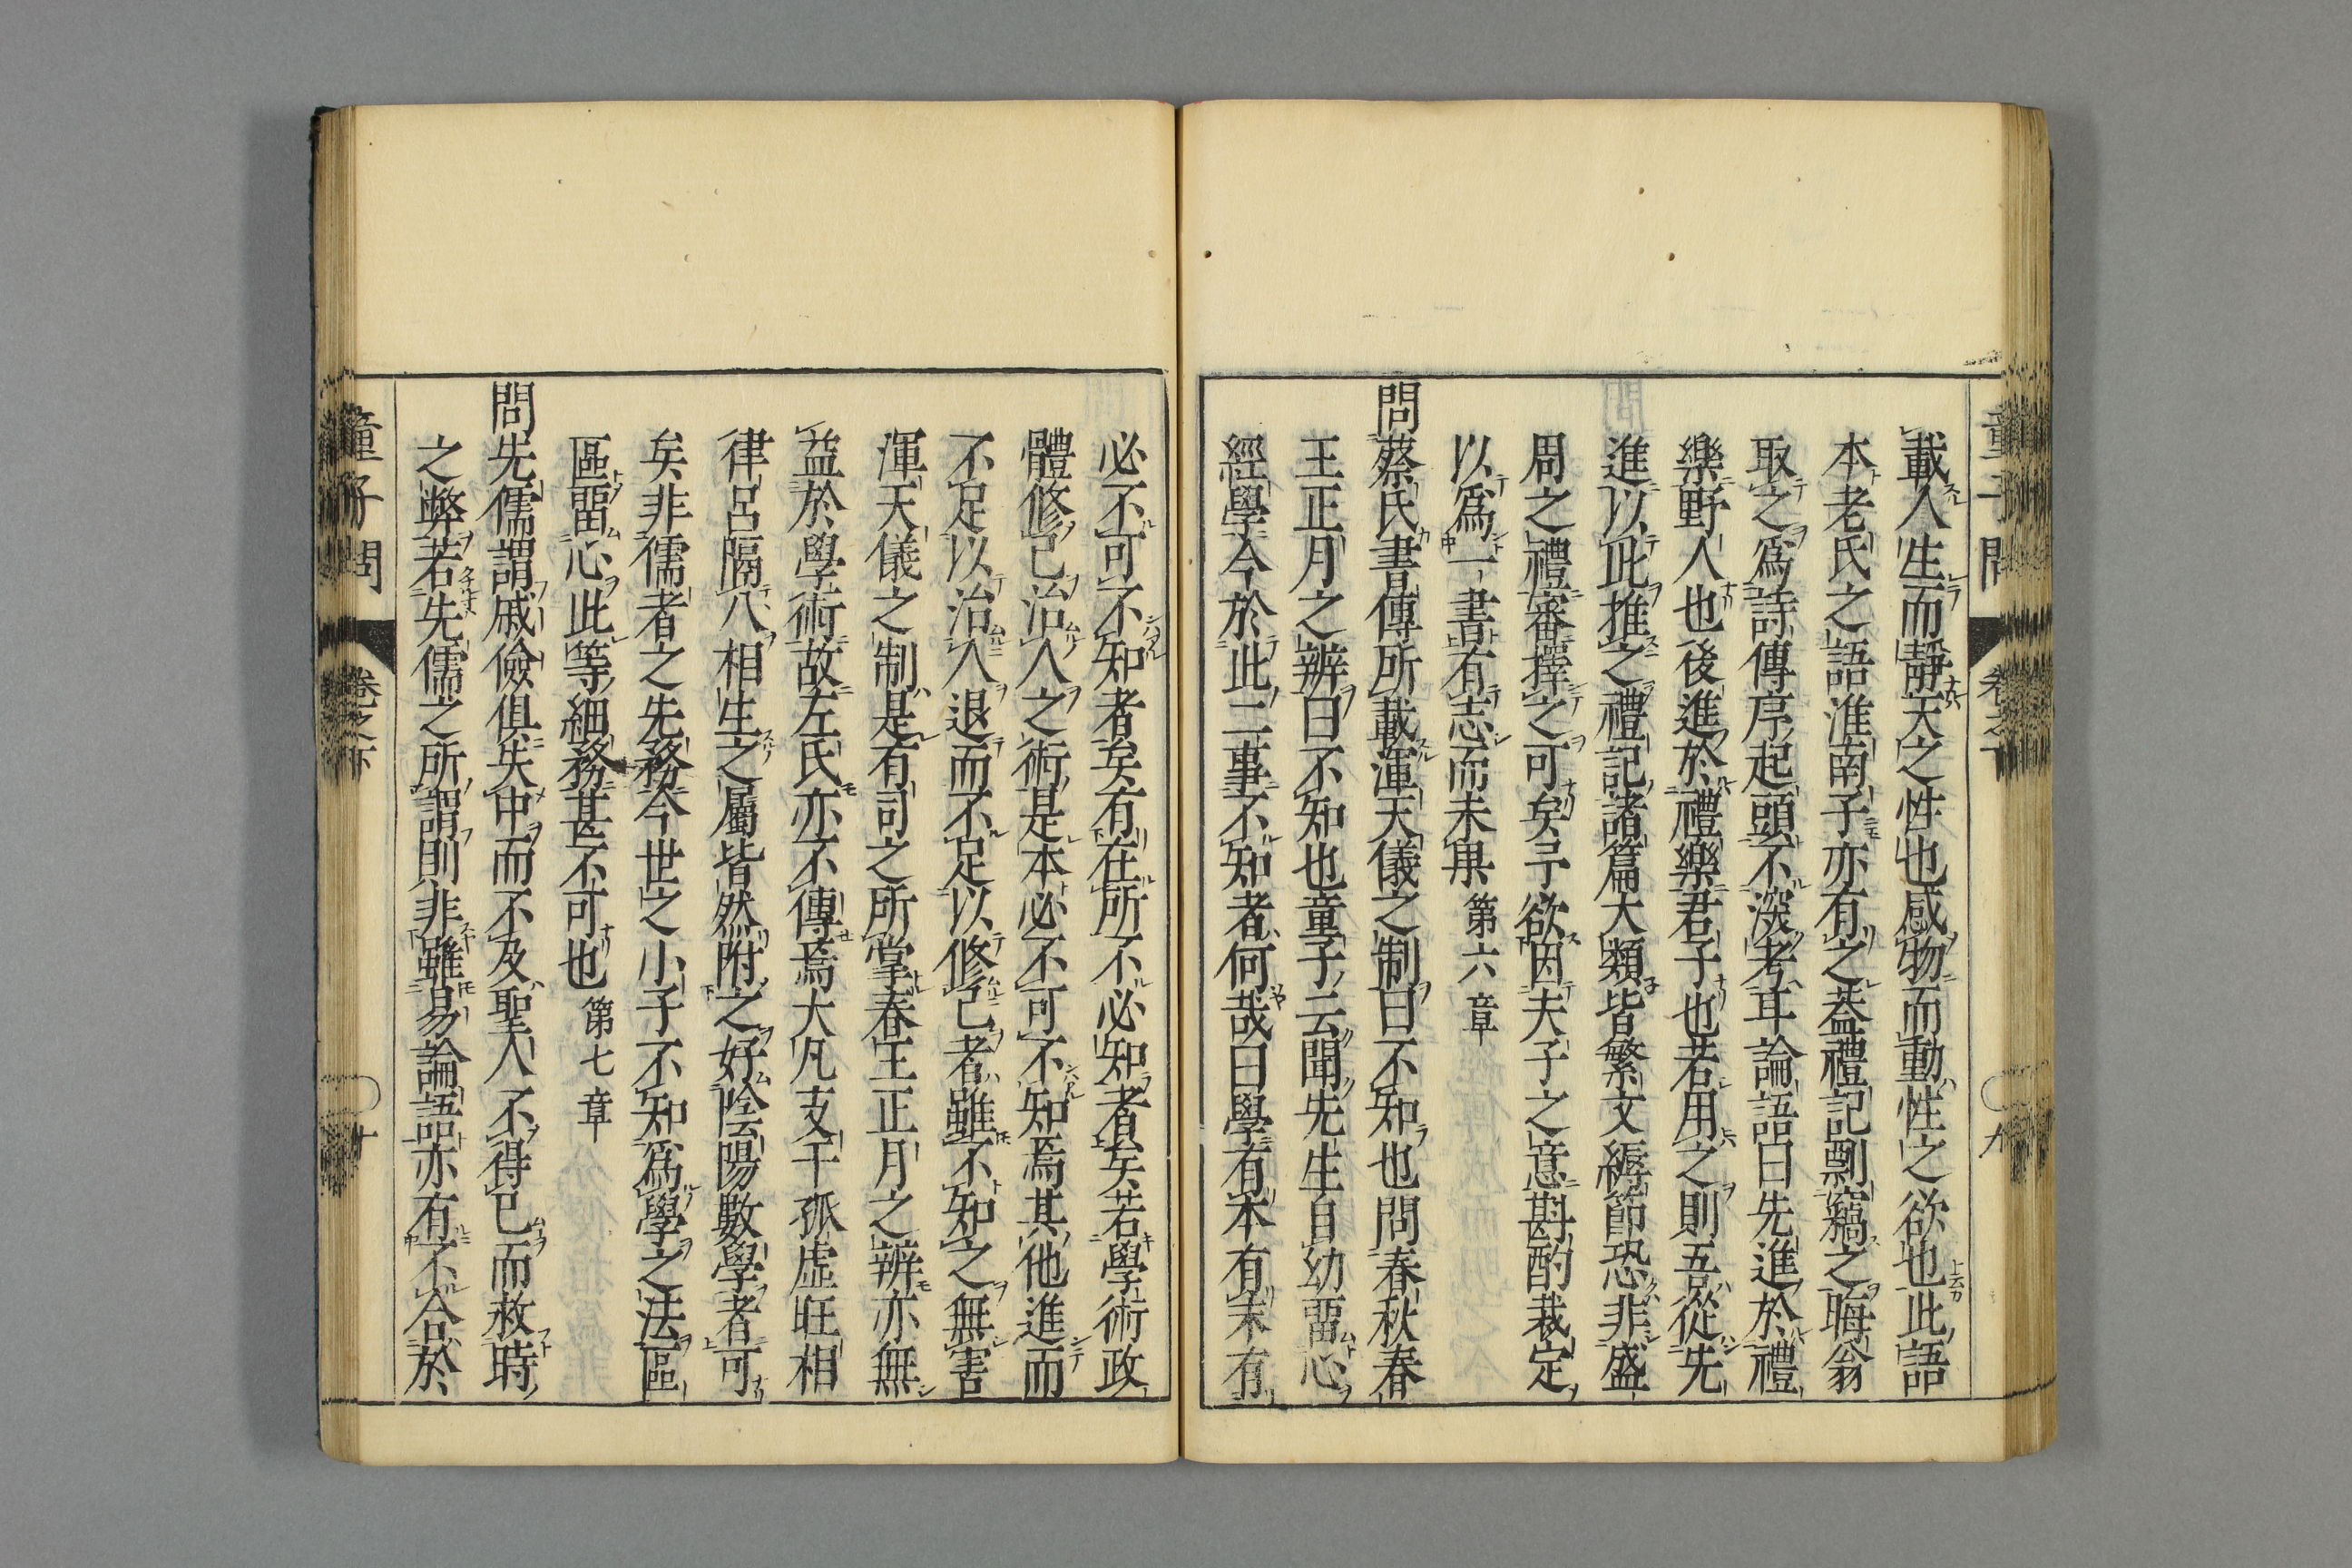 童子問 卷之下 九
載人生而靜天之性也感物而動性之欲也此語
本老氏之語淮南子亦有之蓋禮記剽竊之晦翁
取之爲詩傳序起頭不深考耳論語曰先進於禮
樂野人也後進於禮樂君子也若用之則吾從先
進以此推之禮記諸篇大類皆繁文縟節恐非盛
周之禮審擇之可矣予欲因夫子之意斟酌裁定
以爲一書有志而未果 第六章
問蔡氏書傳所載渾天儀之制曰不知也問春秋春
王正月之辨曰不知也童子云聞先生自幼畱心
經學今於此二事不知者何哉曰學有本有末有
必不可不知者矣有在所不必知者矣若學術政
體修己治人之術是本必不可不知焉其他進而
不足以治人退而不足以修己者雖不知之無害
渾天儀之制是有司之所掌春王正月之辨亦無
益於學術故左氏亦不傳焉大凡支干孤虛旺相
律呂隔八相生之屬皆然附之好陰陽數學者可
矣非儒者之先務今世之小子不知爲學之法區
區畱心此等細務甚不可也 第七章
問先儒謂戚儉俱失中而不及聖人不得已而救時
之弊若先儒之所謂則非雖易論語亦有不合於
童子問 卷之下 十